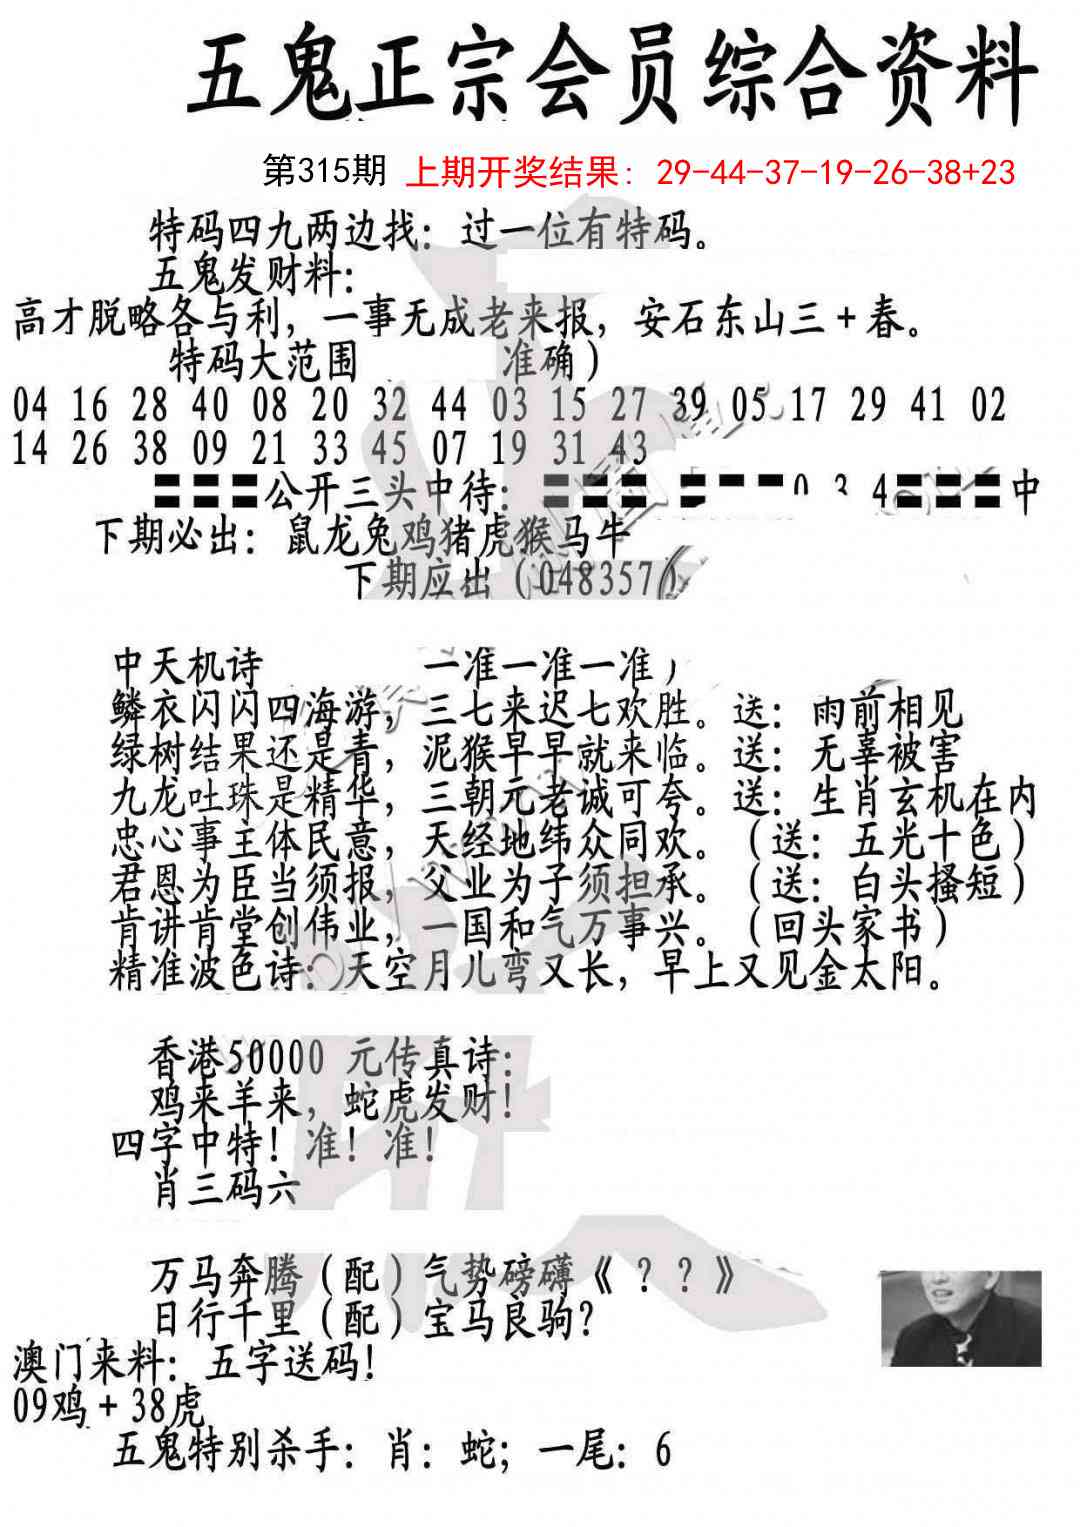 五鬼正宗会员综合资料
第315期 上期开奖结果：29-44-37-19-26-38+23
特码四九两边找：过一位有特码。
五鬼发财料：
高才脱略各与利，一事无成老来报，安石东山三+春。
特码大范围 准确）
04 16 28 40 08 20 32 44 03 15 27 39 05 17 29 41 02
14 26 38 09 21 33 45 07 19 31 43
公开三头中待： 0 3 4 中
下期必出：鼠龙兔鸡猪虎猴马牛
下期应出（048357）
中天机诗 一准一准一准
鳞衣闪闪四海游，三七来迟七欢胜。送：雨前相见
绿树结果还是青，泥猴早早就来临。送：无辜被害
九龙吐珠是精华，三朝元老诚可夸。送：生肖玄机在内
忠心事主体民意，天经地纬众同欢。（送：五光十色）
君恩为臣当须报，父业为子须担承。（送：白头搔短）
肯讲肯堂创伟业，一国和气万事兴。（回头家书）
精准波色诗：天空月儿弯又长，早上又见金太阳。
香港50000 元传真诗：
鸡来羊来，蛇虎发财！
四字中特！准！准！
肖三码六
万马奔腾（配）气势磅礴《？？》
日行千里（配）宝马良驹？
澳门来料：五字送码！
09鸡+38虎
五鬼特别杀手：肖：蛇；一尾：6